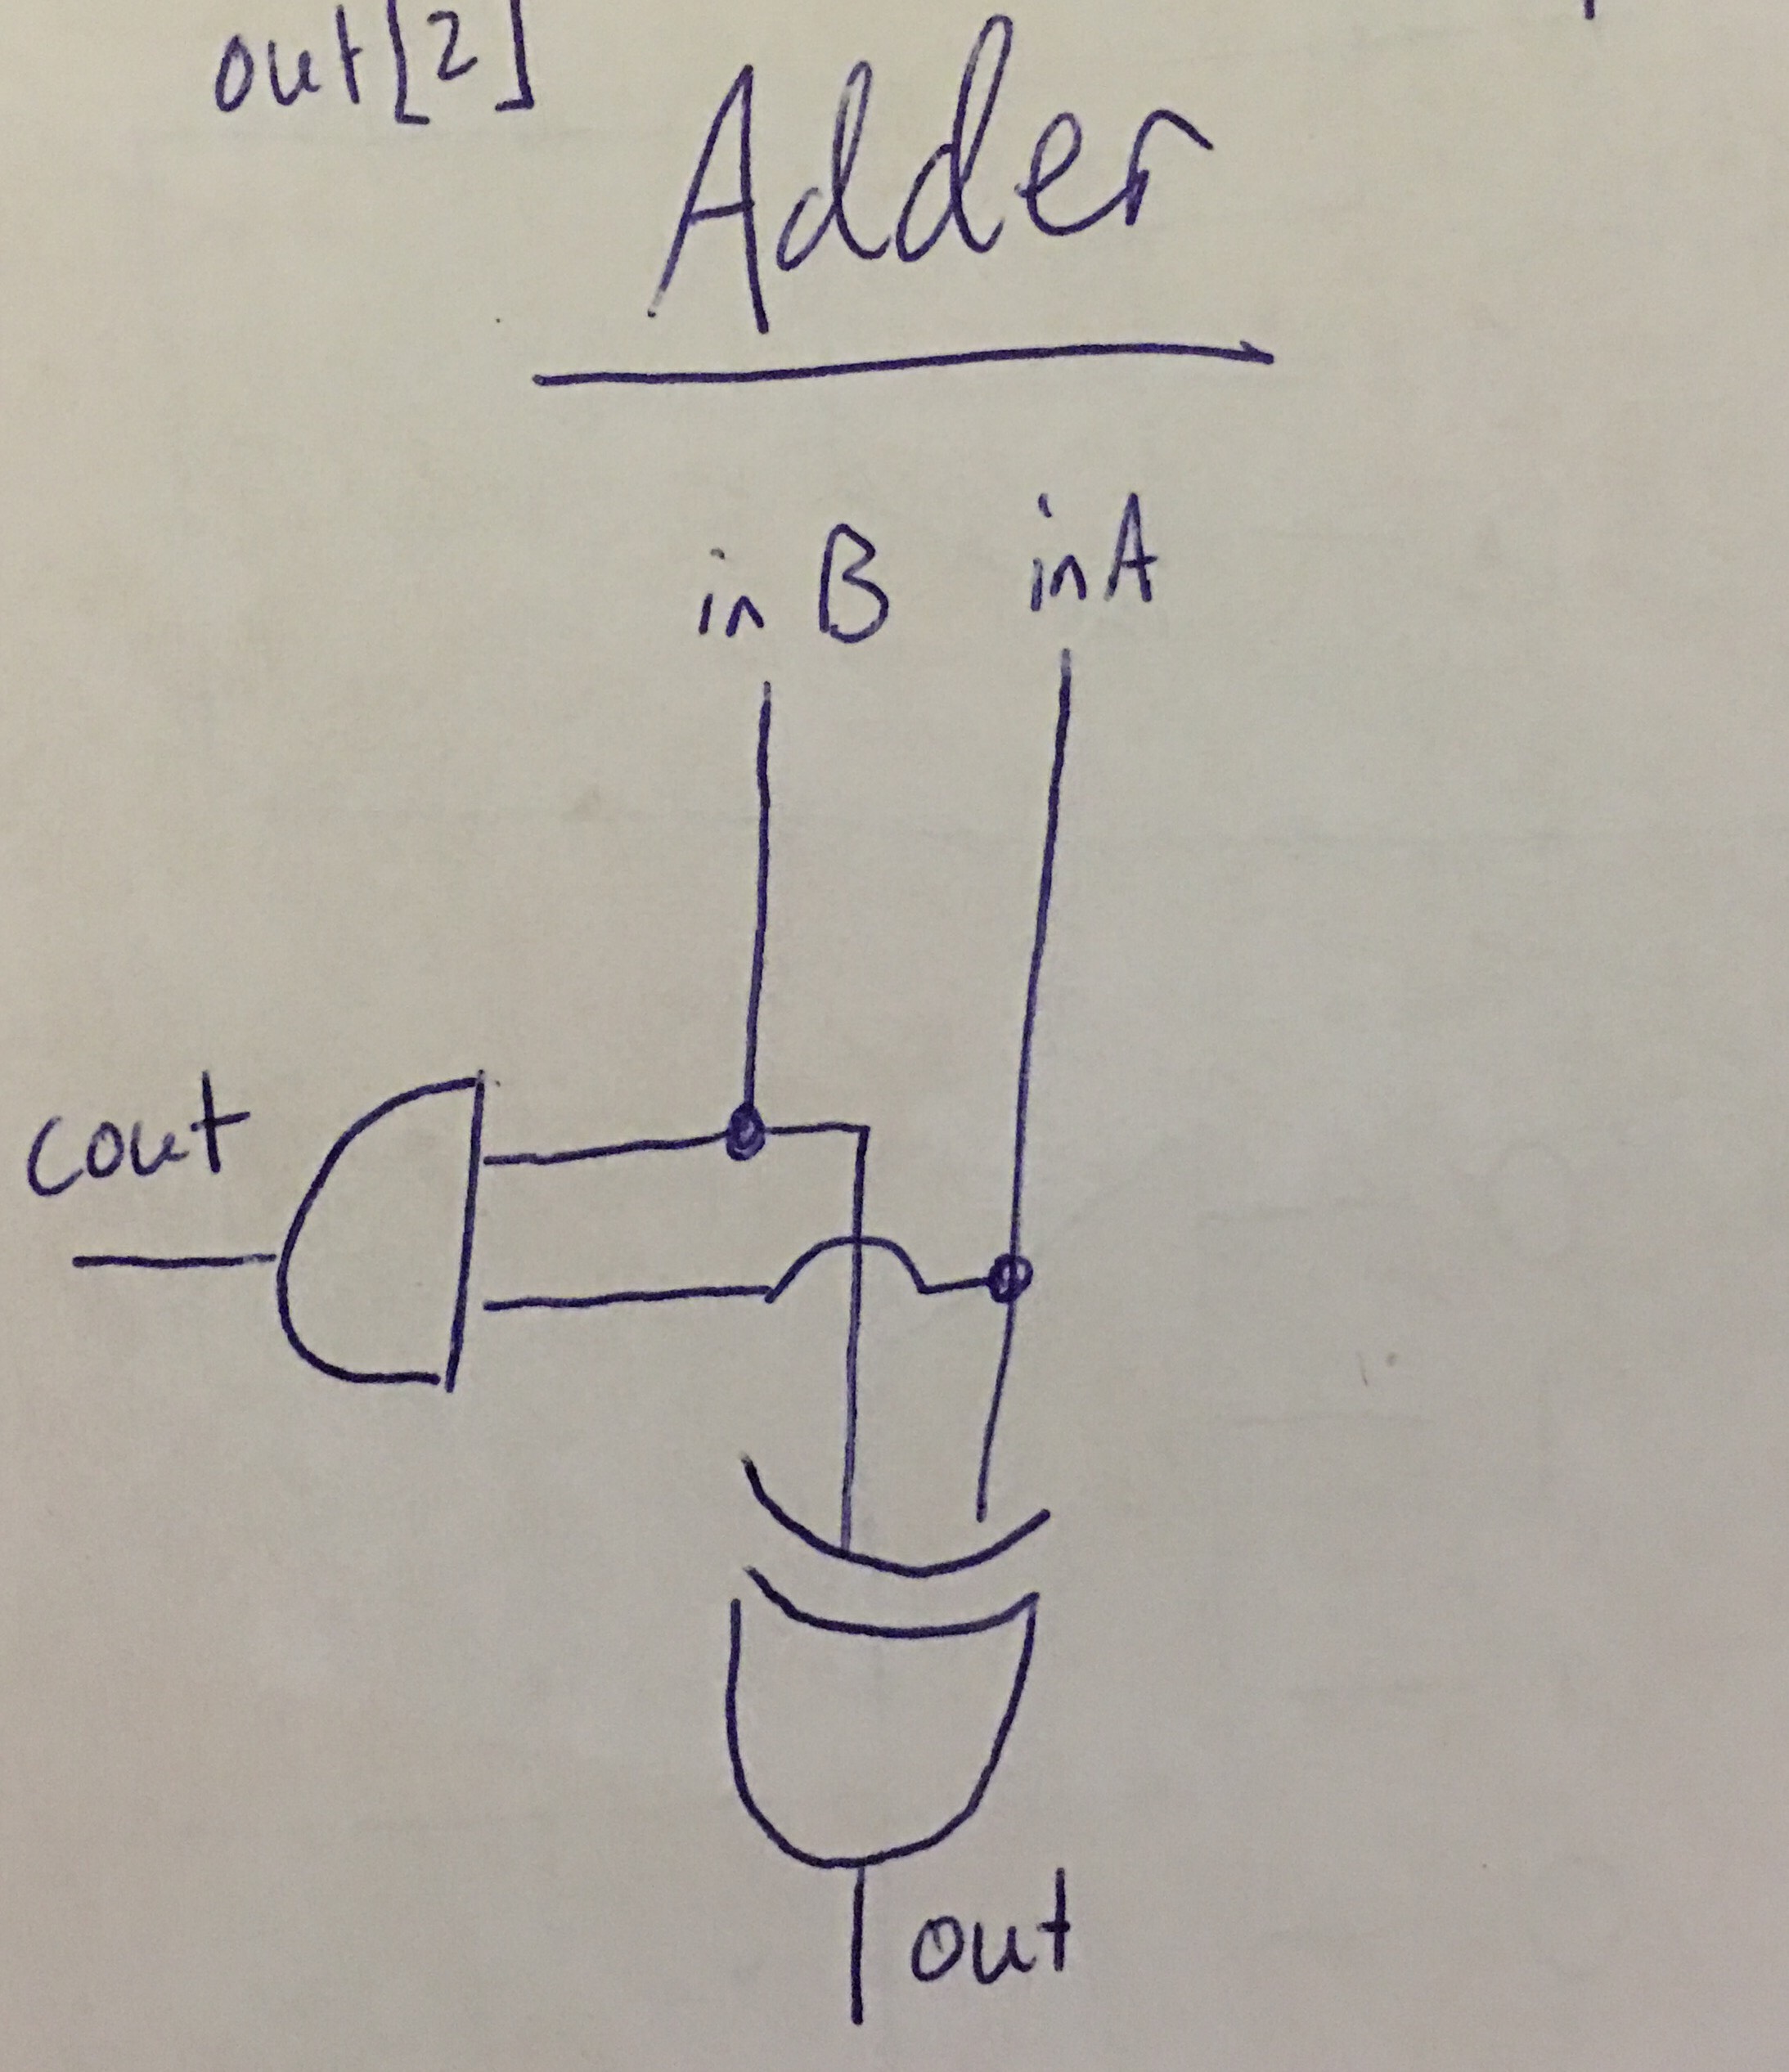 out[2]
Adder
in B
inA
cout
out